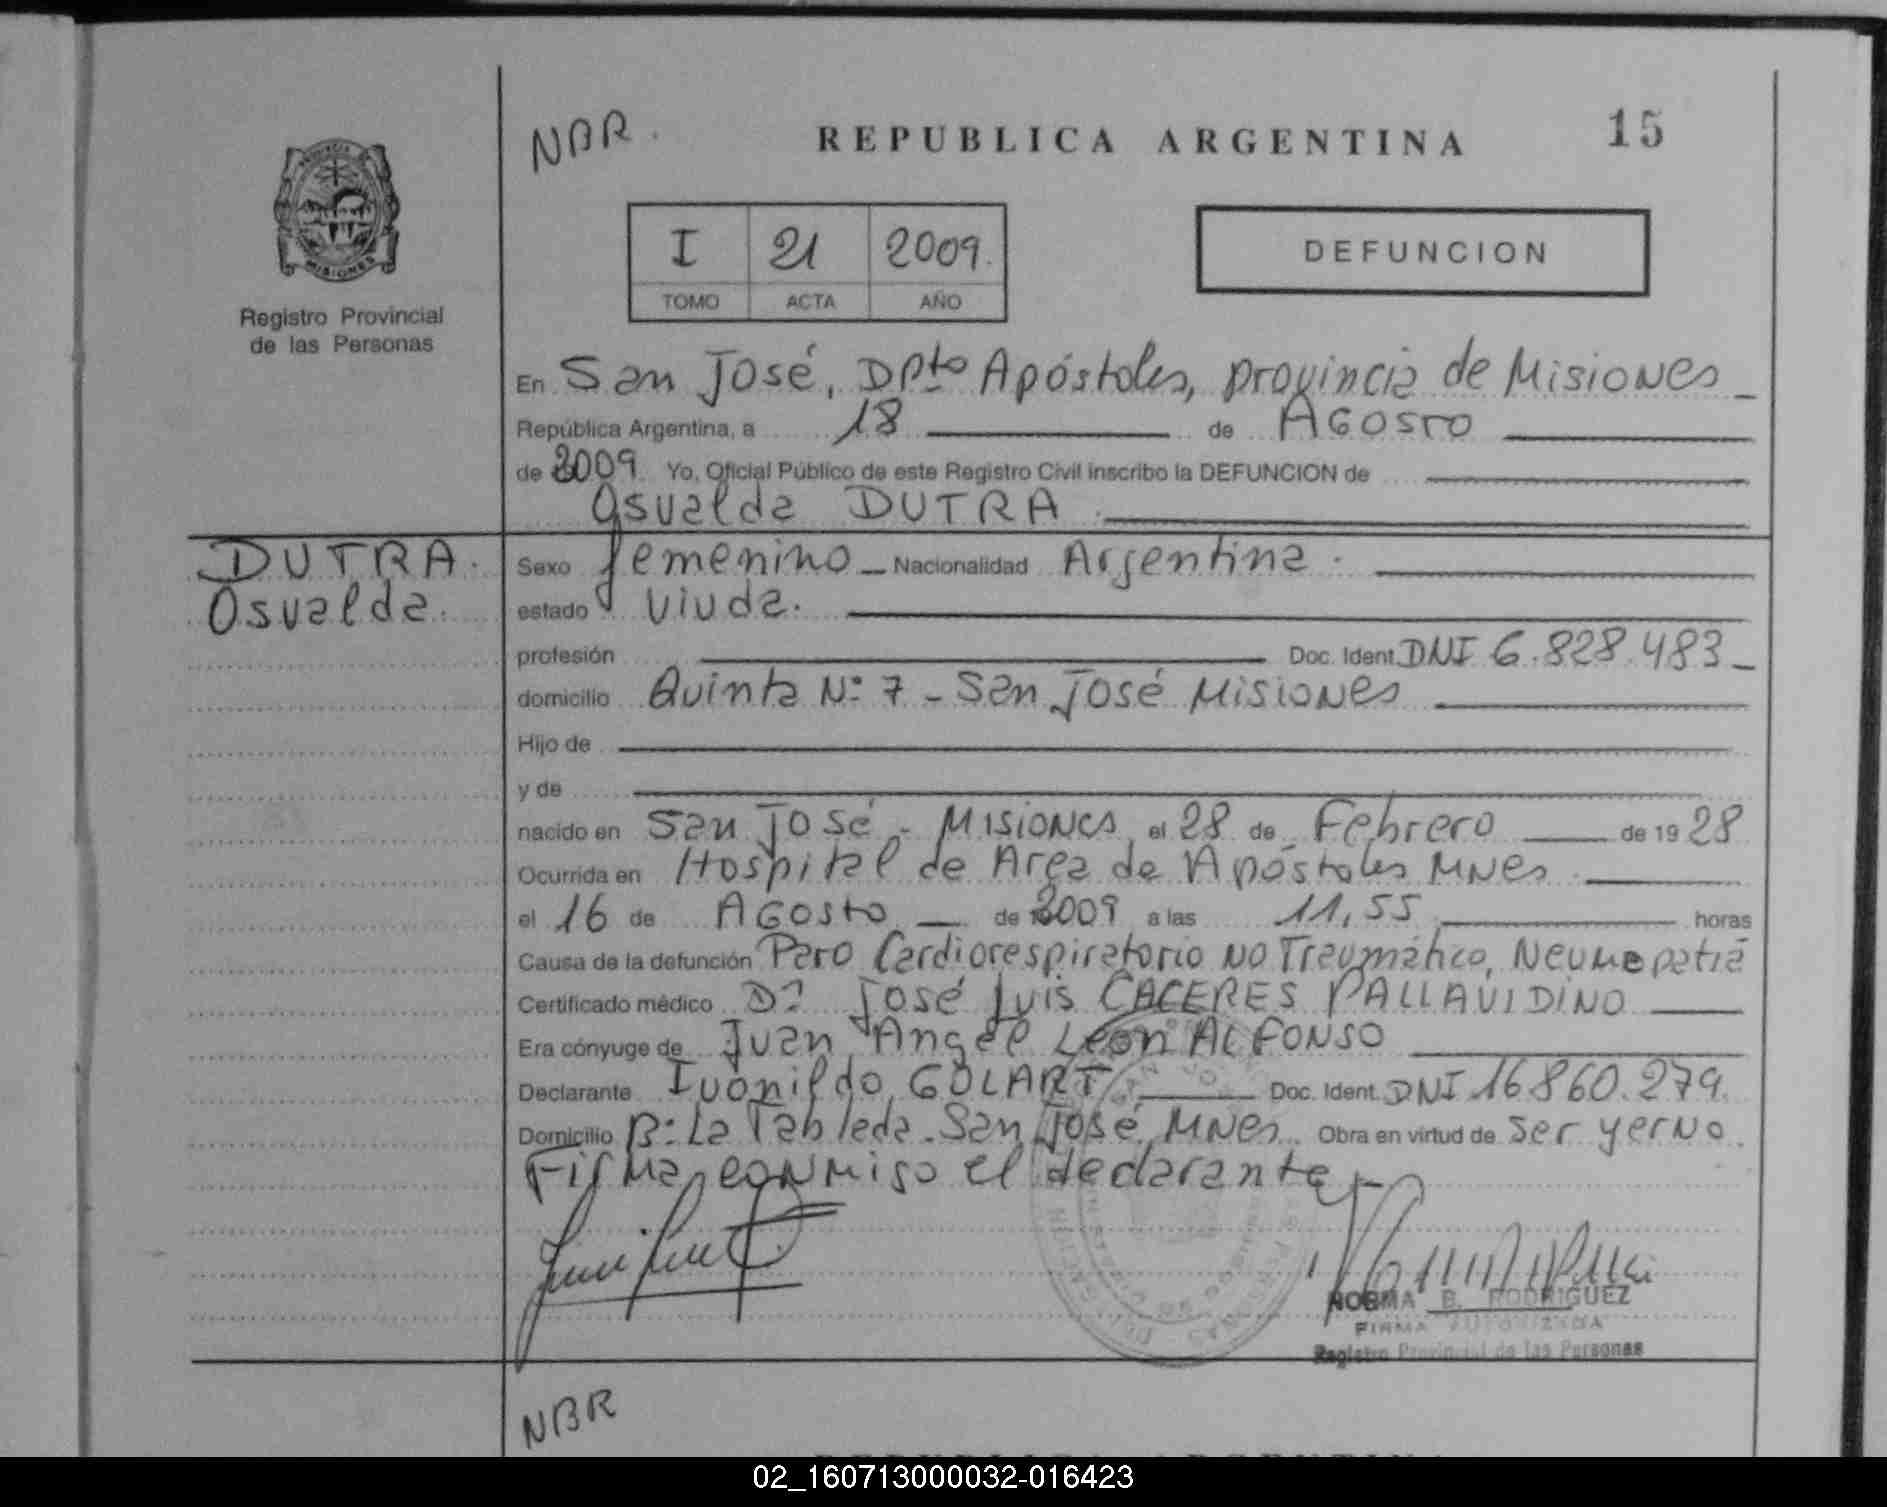 NBR.
REPUBLICA ARGENTINA
15
PROVINCIA DE
MISIONES
Registro Provincial
de las Personas
I 21 2009.
TOMO ACTA AÑO
DEFUNCION
En San José, Dpto Apóstoles, provincia de Misiones
República Argentina, a 18 de AGOSTO
de 2009 Yo, Oficial Público de este Registro Civil inscribo la DEFUNCION de
Osvalda DUTRA
DUTRA.
Osvalda.
Sexo femenino Nacionalidad Argentina.
estado viuda.
profesión Doc. Ident. DNI 6.828.483
domicilio Quinta Nº 7 - San José Misiones
Hijo de
y de
nacido en San José - Misiones el 28 de Febrero de 1928
Ocurrida en Hospital de Area de Apóstoles MNes
el 16 de AGosto de 2009 a las 11,55 horas
Causa de la defunción Paro Cardiorespiratorio NO Traumático, Neumopatía
Certificado médico Dr José Luis CACERES PALLAVIDINO
Era cónyuge de Juan Angel Leon ALFONSO
Declarante Ivonildo GOLART Doc. Ident. DNI 16.860.279.
Domicilio Bº La Tablada. San José, MNes. Obra en virtud de ser yerno.
Firma conmigo el declarante
NORMA B. RODRIGUEZ
FIRMA AUTORIZADA
Registro Provincial de las Personas
NBR
REPUBLICA ARGENTINA
02_160713000032-016423